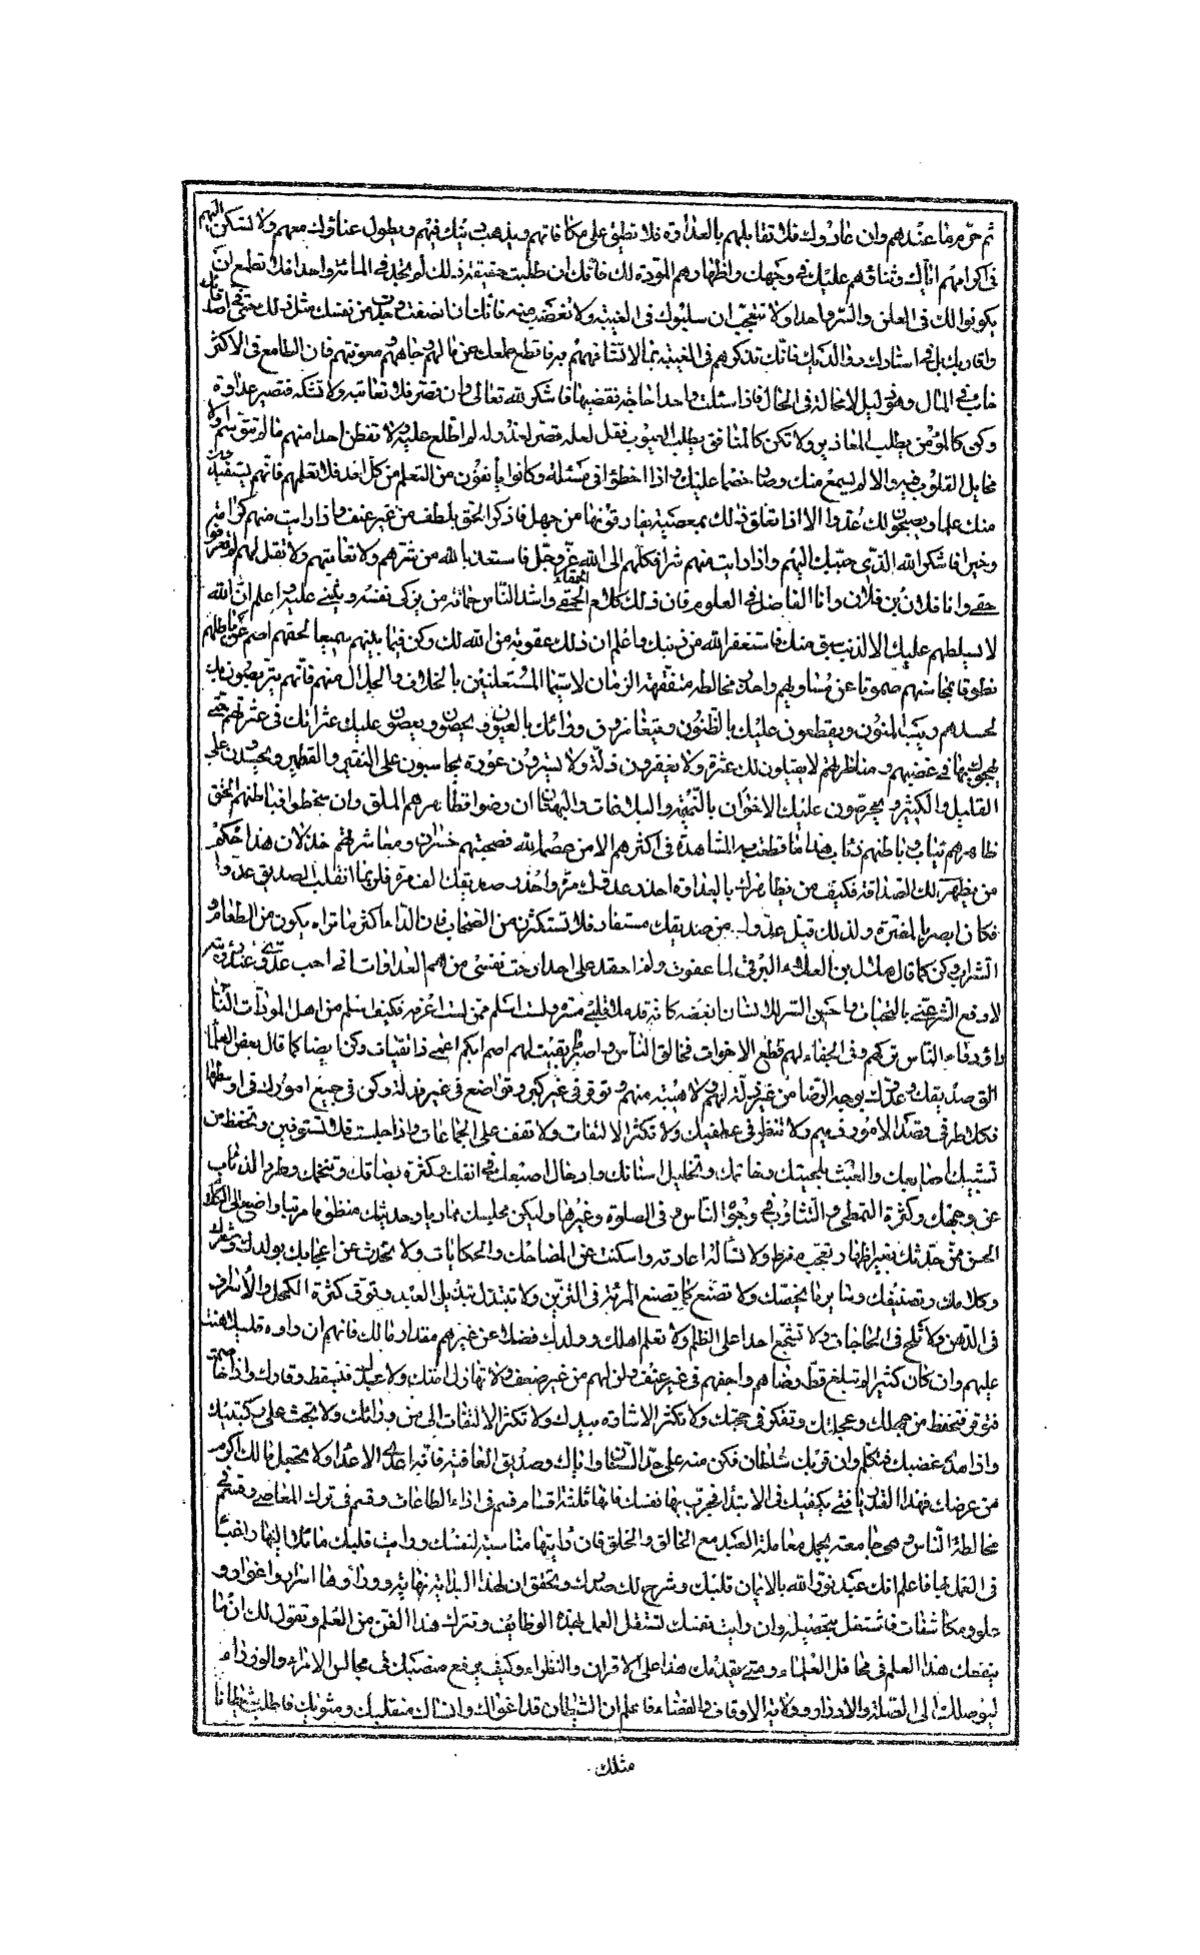 ثم حرم ما عندهم وان عادوك فلا تقابلهم بالعداوة فلا تطيق على مكافاتهم ويذهب دينك فيهم ويطول عناؤك معهم ولا تسكن اليهم
فى اكرامهم اياك وثنائهم عليك فى وجهك واظهارهم المودة لك فانك ان طلبت حقيقة ذلك لم تجد فى المائة واحدا فلا تطمع ان
يكونوا لك فى العلن والسر واحدا ولا تتعجب ان سلبوك فى الغيبة ولا تغضب منه فانك ان انصفت وجدت من نفسك مثل ذلك حتى فى اصدقائك
واقاربك بل فى استادك ووالديك فانك تذكرهم فى الغيبة بما لا تشافههم به فاقطع طمعك عن مالهم وجاههم ومعونتهم فان الطامع فى الاكثر
خائب فى المال وهو ذليل لا محالة فى الحال فاذا سئلت واحدا حاجة فقضيها فاشكر لله تعالى وان قصر فلا تعاتبه ولا تشكه فتصير عداوة
وكن كالمؤمن يطلب المعاذير ولا تكن كالمنافق يطلب العيوب فقل لعله قصر لعذر له لم اطلع عليه ولا تعظن احدا منهم ما لم تتوسم اولا
مخايل القلوب فيه والا لم يسمع منك وصار خصما عليك واذا اخطؤا فى مسئلة وكانوا يأنفون من التعلم من كل احد فلا تعلمهم فانهم يستفيدون
منك علما ويصبحون لك عدوا الا اذا تعلق ذلك بمعصية يقارفونها من جهل فاذكر الحق بلطف من غير عنف واذا رايت منهم كرامة
وخيرا فاشكر الله الذى حببك اليهم واذا رايت منهم شرا فكلهم الى الله عز وجل فاستعذ بالله من شرهم ولا تعاتبهم ولا تقل لهم لم تعرفوا
حقى وانا فلان بن فلان وانا الفاضل فى العلوم فان ذلك كلام الحمقى واشد الناس حماقة من يزكى نفسه ويثنى عليها واعلم ان الله
لا يسلطهم عليك الا لذنب سبق منك فاستغفر الله من ذنبك واعلم ان ذلك عقوبة من الله لك وكن فيما بينهم سميعا لحقهم اصم عن باطلهم
نطوقا بمحاسنهم صموتا عن مساويهم واحذر مخالطة متفقهة الزمان لاسيما المشتغلين بالخلاف والجدال منهم فانهم يتربصون بك
لحسدهم ريب المنون ويقطعون عليك بالظنون ويتغامزون وراءك بالعيون ويحصون عليك عثراتك فى عشرتهم حتى
يجبهوك بها فى غضبهم ومناظرتهم لا يقيلون لك عثرة ولا يغفرون زلة ولا يسترون عورة يحاسبون على النقير والقطمير ويحسدون على
القليل والكثير ويحرصون عليك الاخوان بالنميمة والبلاغات والبهتان ان رضوا فظاهرهم الملق وان سخطوا فباطنهم الحنق
ظاهرهم ثياب وباطنهم ذئاب هذا ما قطعت به المشاهدة فى اكثرهم الا من عصمه الله فصحبتهم خسران ومعاشرتهم خذلان هذا حكم
من يظهر لك الصداقة فكيف من يظاهرك بالعداوة احذر عدوك مرة واحذر صديقك الف مرة فلربما انقلب الصديق عدوا
فكان ابصر بالمضرة ولذلك قيل عدوك من صديقك مستفاد فلا تستكثرن من الصحاب فان الداء اكثر ما تراه يكون من الطعام و
الشراب وكن كما قال هلال بن العلاء البرقى لما عفوت ولم احقد على احد ارحت نفسى من هم العداوات انى احيى عدوى عند رؤيته
لادفع الشر عنى بالتحيات واحسن البشر للانسان ابغضه كانه قد ملا قلبى مسرة ولست اسلم ممن لست اعرفه فكيف اسلم من اهل المودات الناس
داء دواء الناس تركهم وفى الجفاء لهم قطع الاخوات فخالق الناس واصبر ما بقيت لهم اصم ابكم اعمى ذا تقيات وكن ايضا كما قال بعض العلماء
الق صديقك وعدوك بوجه الرضا من غير ذلة لهم ولا هيبة منهم وتوقر فى غير كبر وتواضع فى غير مذلة وكن فى جميع امورك فى اوسطها
فكلا طرفى قصد الامور ذميم ولا تنظر فى عطفيك ولا تكثر الالتفات ولا تقف على الجماعات واذا جلست فلا تستوفز وتحفظ من
تشبيك اصابعك والعبث بلحيتك وخاتمك وتخليل اسنانك وادخال اصبعك فى انفك وكثرة بصاقك وتنخمك وطرد الذباب
عن وجهك وكثرة التمطى والتثاؤب فى وجوه الناس وفى الصلوة وغيرها وليكن مجلسك هاديا وحديثك منظوما مرتبا واصغ الى الكلام
الحسن ممن حدثك بغير اظهار تعجب مفرط ولا تسأله اعادته واسكت عن المضاحك والحكايات ولا تحدث عن اعجابك بولدك وشعرك
وكلامك وتصنيفك وسائر ما يخصك ولا تصنع كما يصنع المرئة فى التزين ولا تبتذل تبذل العبد وتوق كثرة الكحل والاسراف
فى الدهن ولا تلح فى الحاجات ولا تشجع احدا على الظلم ولا تعلم اهلك وولدك فضلا عن غيرهم مقدار مالك فانهم ان راوه قليلا هنت
عليهم وان كان كثيرا لم تبلغ قط رضاهم واجفهم فى غير عنف ولن لهم من غير ضعف ولا تهازل امتك ولا عبدك فيسقط وقارك واذا خاصمت
فتوقر وتحفظ من جهلك وعجلتك وتفكر فى حجتك ولا تكثر الاشارة بيدك ولا تكثر الالتفات الى من وراءك ولا تجث على ركبتيك
واذا هدء غضبك فتكلم وان قربك سلطان فكن منه على حد السنان واياك وصديق العافية فانه اعدى الاعداء ولا تجعل مالك اكرم
من عرضك فهذا القدر يا فتى يكفيك فى الابتداء فجرب بها نفسك فانها ثلثة اقسام قسم فى اداء الطاعات وقسم فى ترك المعاصى وقسم فى
مخالطة الناس وهى جامعة بجمل معاملة العبد مع الخالق والخلق فان رأيتها مناسبة لنفسك ورايت قلبك مائلا اليها راغبا
فى العمل بها فاعلم انك عبد نور الله بالايمان قلبك وشرح لك صدرك وتحقق ان لهذا البداية نهاية ووراءها اسرار واغوار و
علوم ومكاشفات فاشتغل بتحصيله وان رايت نفسك تستثقل العمل بهذه الوظايف وتنكر هذا الفن من العلم وتقول لك انما
ينفعك هذا العلم فى محافل العلماء ومتى يقدمك هذا على الاقران والنظراء وكيف يرفع منصبك فى مجالس الامراء والوزراء
ليوصلك الى الصلة والادرار وولاية الاوقاف والقضاء فاعلم ان الشيطان قد اغواك وانساك منقلبك ومثويك فاطلب شيطانا
مثلك